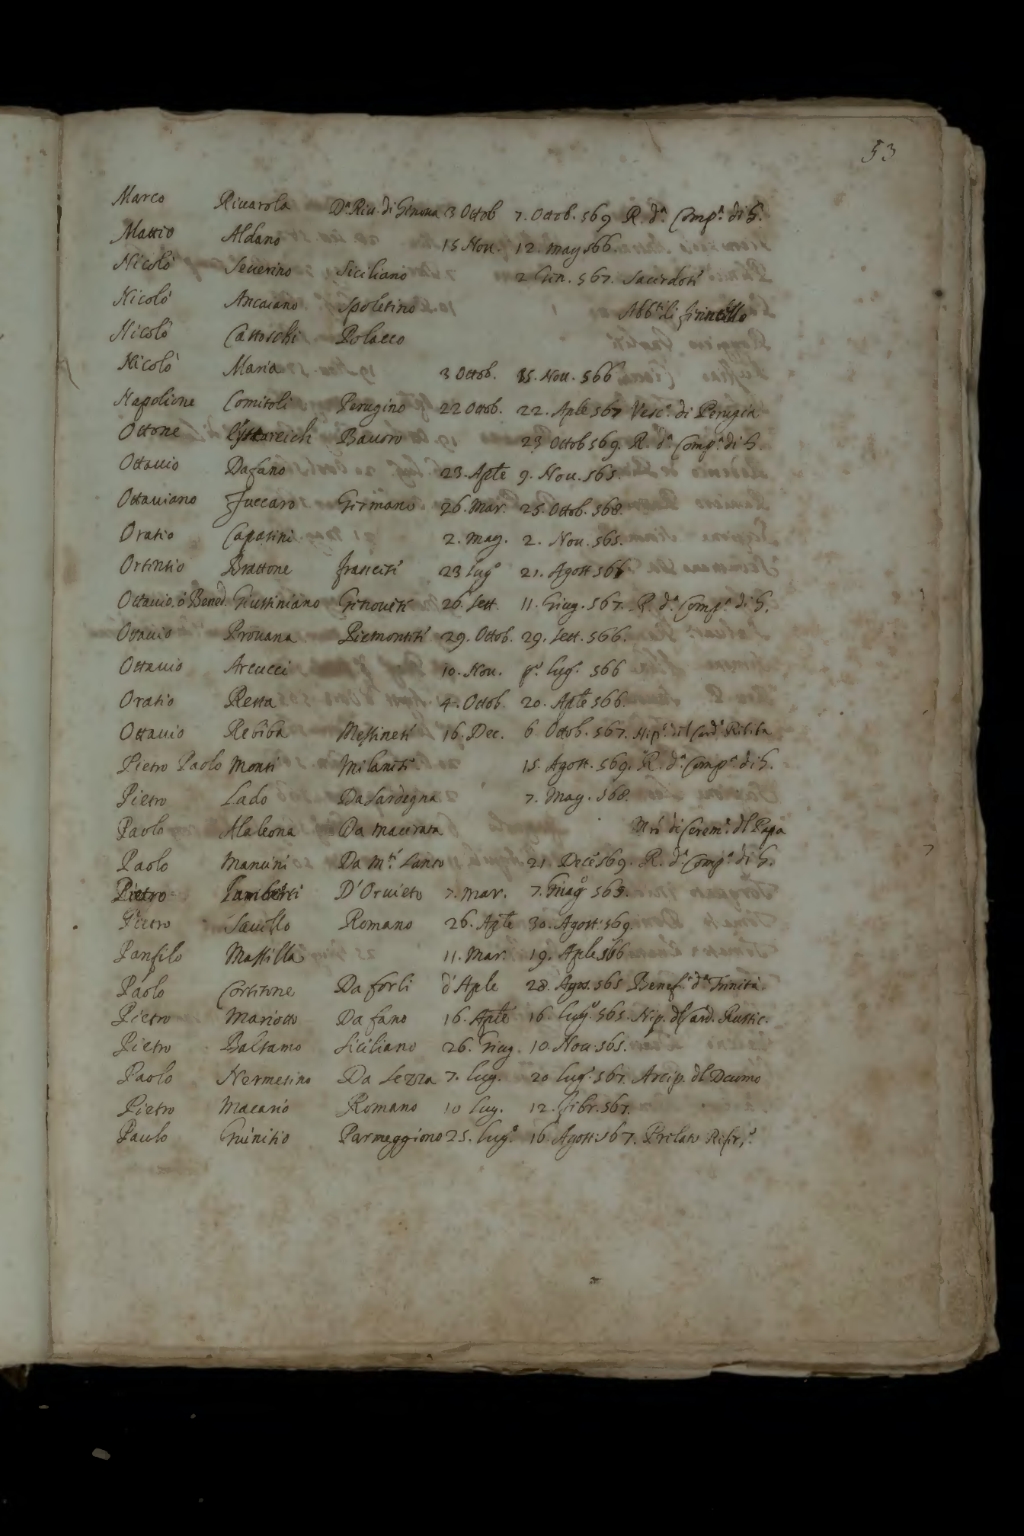 53
Marco Riccarola Da Riv. di Genova 3 Octob 7. Octob. 569 R. da Compa. di G.
Mattio Aldano 15 Nov. 12. may 566.
Nicolò Severino Siciliano 2 Giu. 567. Sacerdote
Nicolò Ancaiano Spoletino Abbte di
Nicolò Polacco
Nicolò Maria 3 Octob. 15. Nov. 566
Napolione Comitoli Perugino 22 Octob. 22. Aple 567 Vesco. di Perugia
Ottone Bavaro 23 Octob 569. R. da Compa. di G.
Ottavio Da fano 23. Aple 9. Nov. 565.
Ottaviano Zuccaro Germano 26. Mar. 25. Octob. 568.
Oratio 2. may. 2. Nov. 565.
Ortentio Brattone francese 23 lugo 21. Agost. 566
Ottavio, ò Bened. Giustiniano Genovese 26 Sett. 11. Giug. 567. R. da Compa. di G.
Ottavio Provana Piemontese 29. Ottob. 29. Sett. 566.
Ottavio Arcucci 10. Nov. po. lugo. 566
Oratio Resta 4. Octob. 20. Aple 566.
Ottavio Rebiba Messinese 16. Dec. 6 Octob. 567. Nipe. del Cardl Rebiba
Pietro Paolo Monti Milanese 15. Agost. 569. R. da Compa. di G.
Pietro Lado Da Sardegna 7. May. 568.
Paolo Alaleona Da Macerata Mro di Cerema. del Papa
Paolo Mancini Da Mte Santo 21. Dece 569. R. da Compa. di G.
Pietro Lamberti D'Orvieto 7. Mar. 7.
Pietro Savello Romano 26. Aple 30. Agost. 569.
Panfilo Massilla 11. Mar. 19. Aple 566
Paolo Cortitone Da forli d'Aple 28. Agos. 565 Benefo. da Trinità
Pietro Mariotto Da fano 16. Aple 16. lugo 565. Nip. del Card. Rustic.
Pietro Balsamo Siciliano 26. Giug. 10. Nov. 565.
Paolo Nermesino Da Sezza 7. lug. 20 lugo. 567. Arcip. del Deumo
Pietro Macario Romano 10 lug. 12. febr. 567.
Paulo Guinitio Parmeggiono 25. lugo. 16 Agost. 567. Prelato